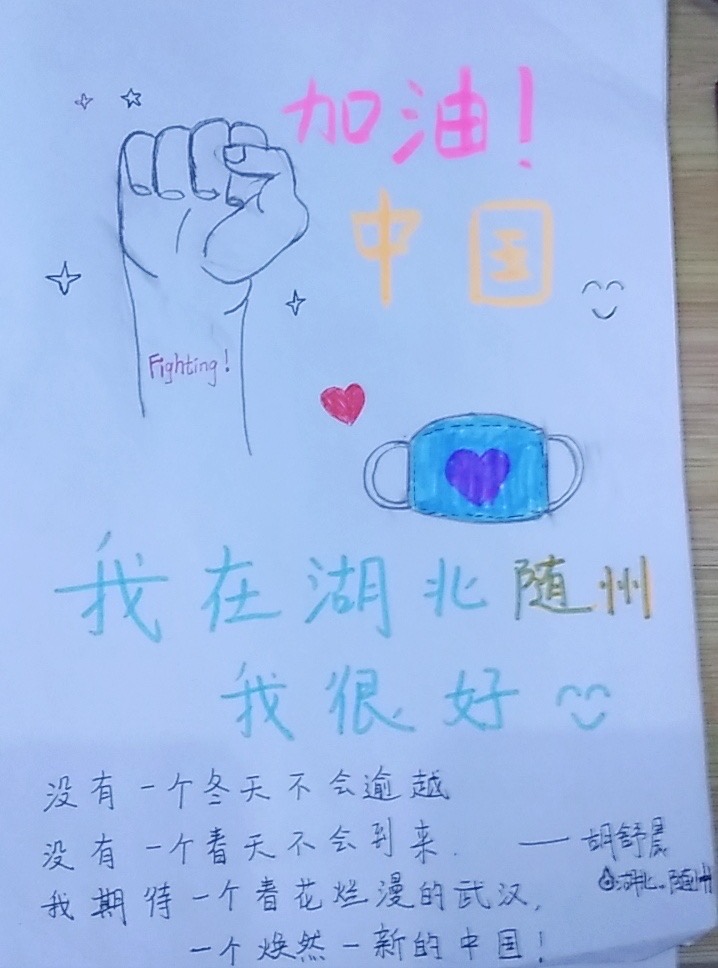 加油!
中国
Fighting!
我在湖北随州
我很好
没有一个冬天不会逾越
没有一个春天不会到来. ——胡舒晨
湖北。随州
我期待一个春花烂漫的武汉,
一个焕然一新的中国!